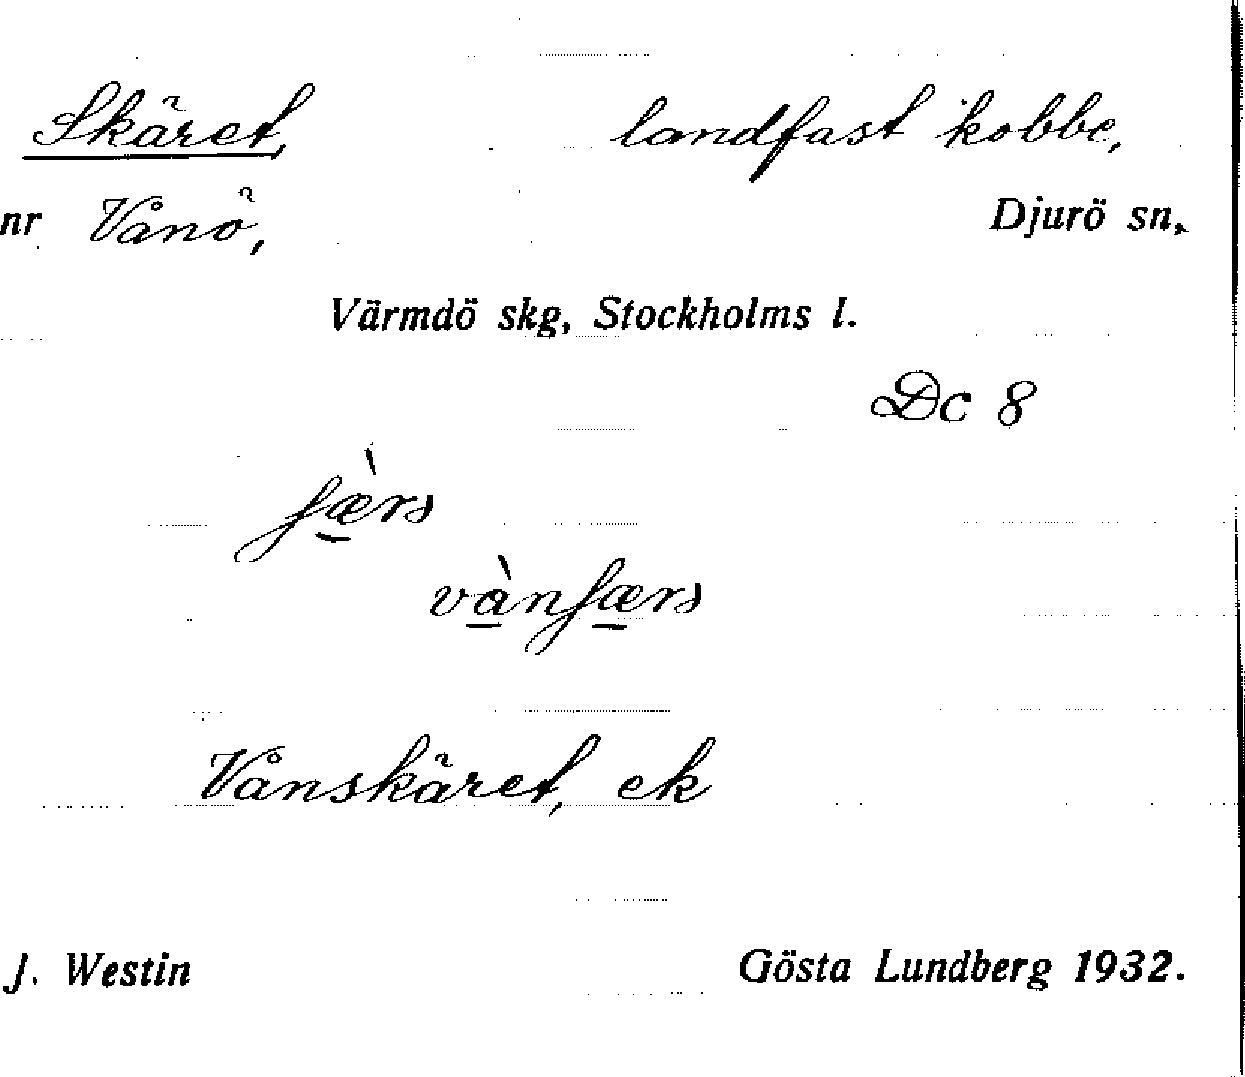 Skäret, landfast kobbe,
nr Vånö, Djurö sn,
Värmdö skg, Stockholms l.
Dc 8
ʃæ̀rs
vànʃærs
Vånskäret, ek
J. Westin Gösta Lundberg 1932.